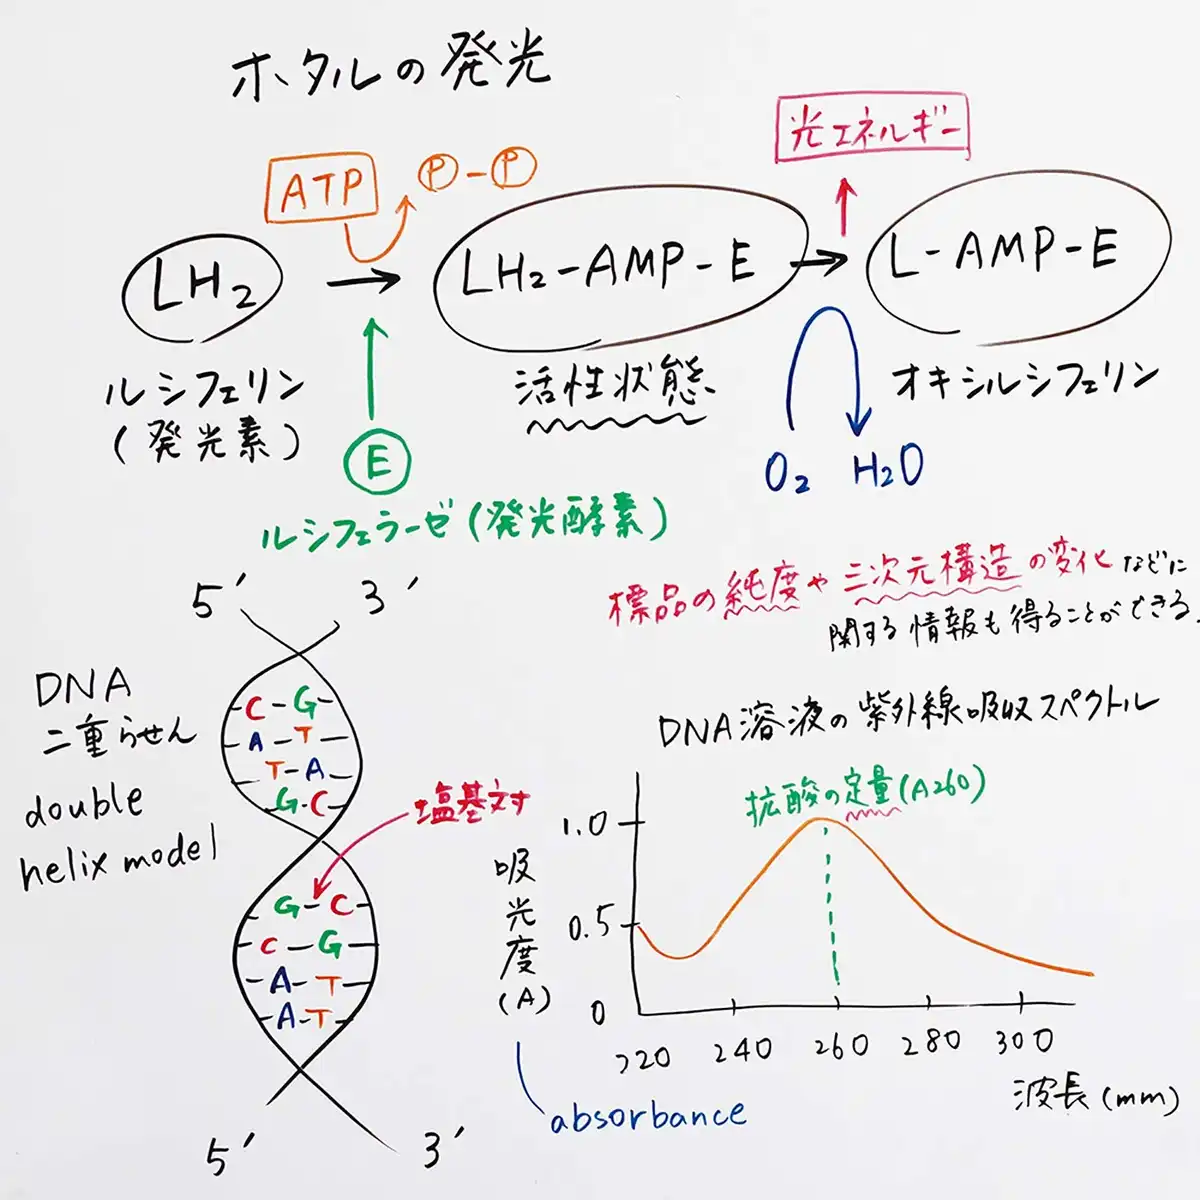 ホタルの発光
ATP
Ⓟ-Ⓟ
光エネルギー
LH₂
LH₂-AMP-E
L-AMP-E
ルシフェリン
(発光素)
活性状態
オキシルシフェリン
E
ルシフェラーゼ(発光酵素)
O₂ H₂O
標品の純度や三次元構造の変化などに
関する情報も得ることができる.
5′ 3′
DNA
二重らせん
double
helix model
C-G
A-T
T-A
G-C
塩基対
G-C
C-G
A-T
A-T
5′ 3′
DNA溶液の紫外線吸収スペクトル
拡酸の定量(A260)
吸光度(A)
1.0
0.5
0
220 240 260 280 300
波長(mm)
absorbance